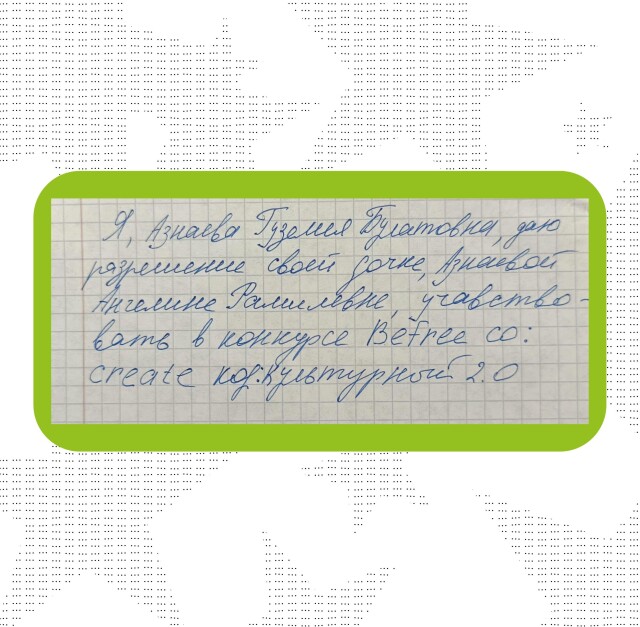 Я, Азнаева Гузелия Булатовна, даю
разрешение своей дочке, Азнаевой
Ангелине Рамилевне, учавство-
вать в конкурсе Befree co:
create код:культурный 2.0